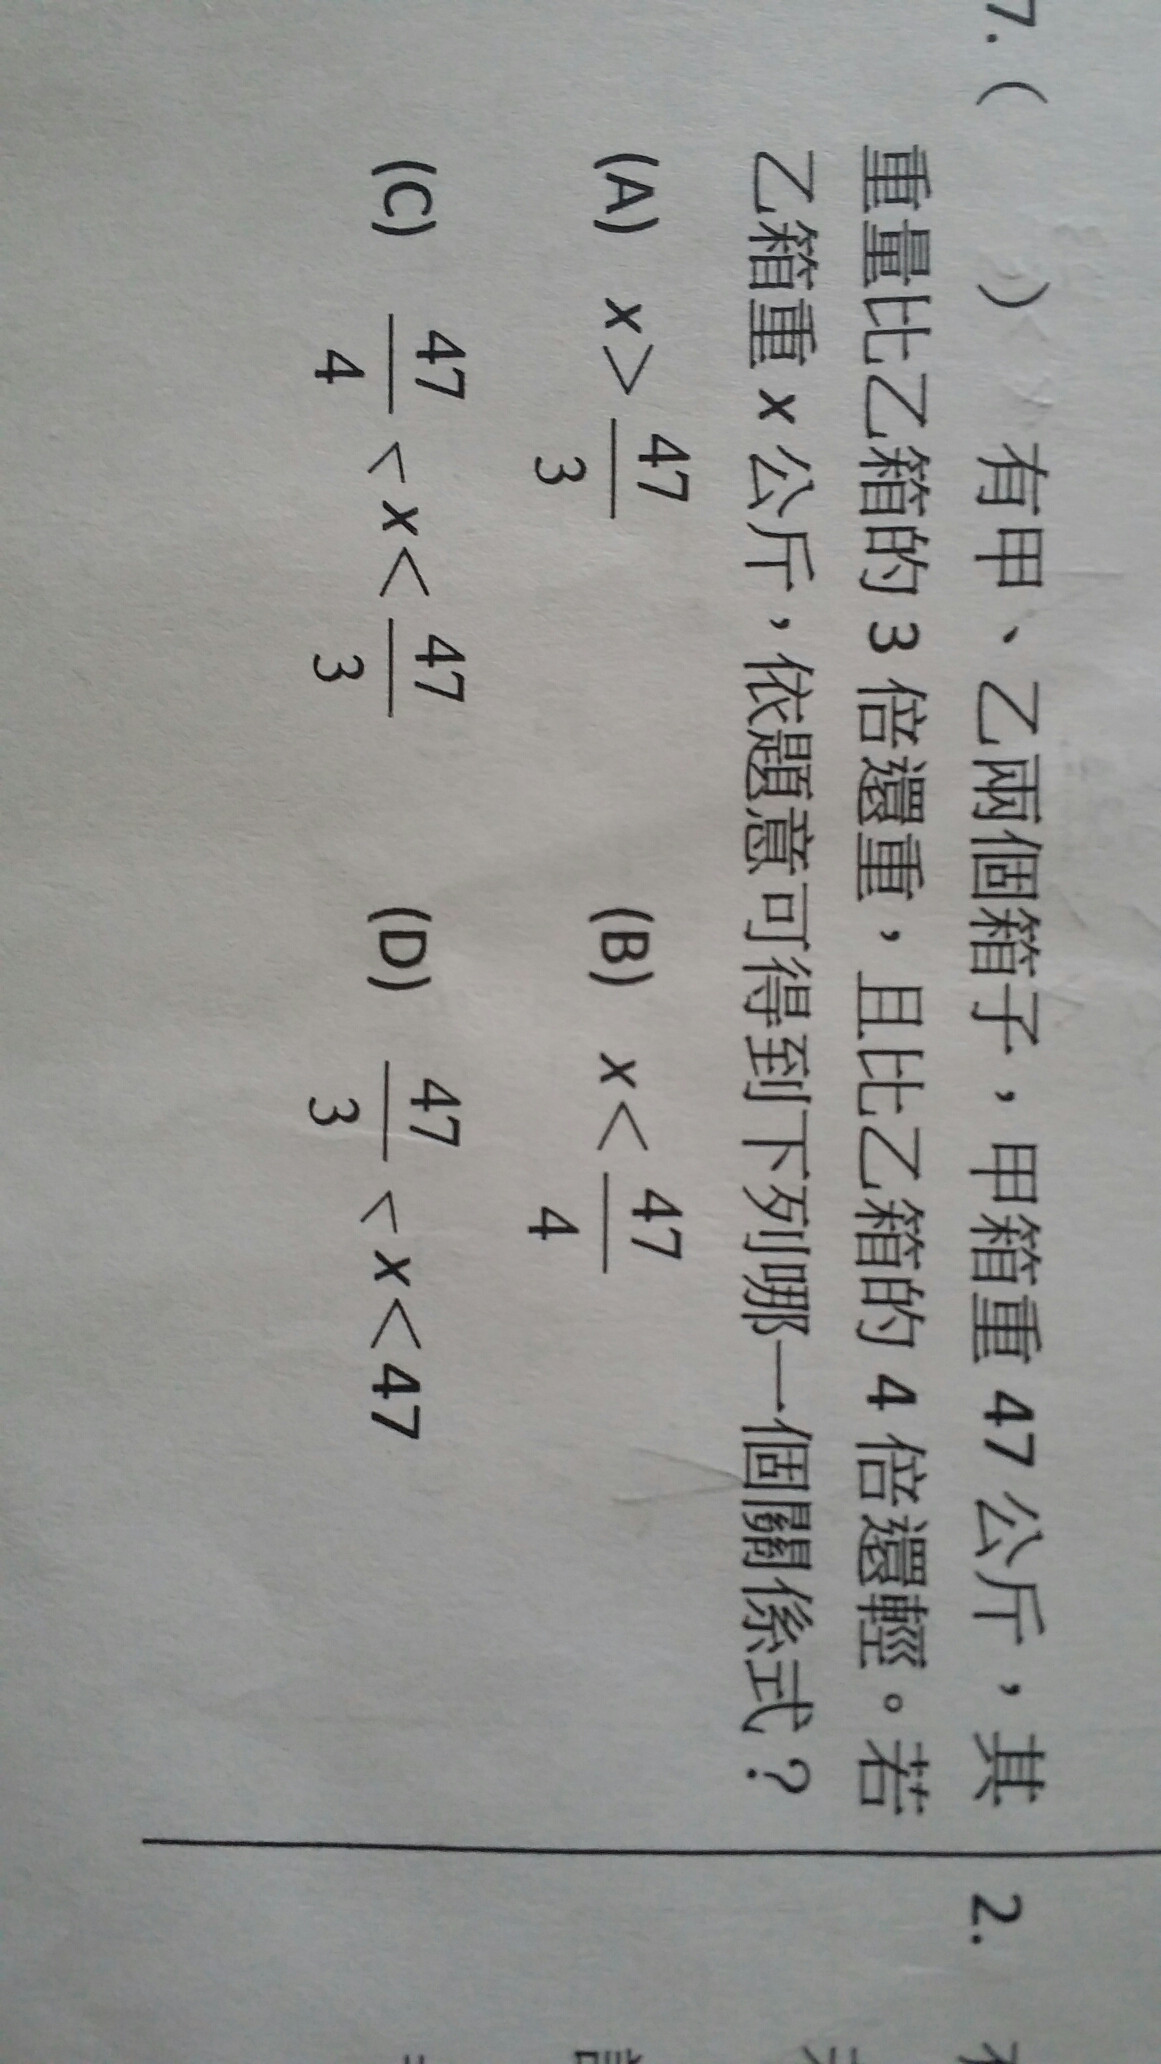 7.(　　) 有甲、乙兩個箱子，甲箱重 47 公斤，其
重量比乙箱的 3 倍還重，且比乙箱的 4 倍還輕。若
乙箱重 x 公斤，依題意可得到下列哪一個關係式？
(A) x > 47/3 (B) x < 47/4
(C) 47/4 < x < 47/3 (D) 47/3 < x < 47
2.